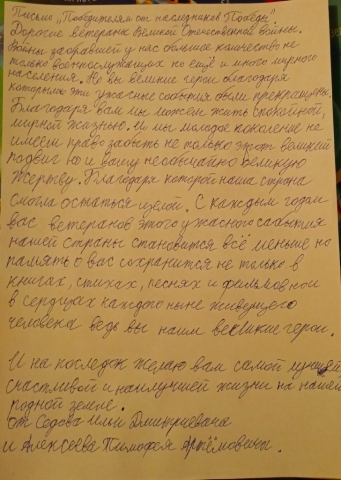 Письмо „Победителям от наследников Победы".
Дорогие ветераны Великой Отечественной войны.
Войны забравшей у нас большое количество не
только военнослужащих но ещё и много мирного
населения. Но вы великие герои благодаря
которым эти ужасные события были прекращены.
Благодаря вам мы можем жить спокойной,
мирной жизнью. И мы молодое поколение не
имеем право забыть не только этот великий
подвиг но и вашу несомненно великую
жертву. Благодаря которой наша страна
смогла остаться целой. С каждым годом
вас ветеранов этого ужасного события
нашей страны становится всё меньше но
память о вас сохранится не только в
книгах, стихах, песнях и фильмах но и
в сердцах каждого ныне живущего
человека ведь вы наши великие герои.
И на последок желаю вам самой лучшей
счастливой и наилучшей жизни на нашей
родной земле.
От Седова Ильи Дмитриевича
и Алексеева Тимофея Артёмовича.